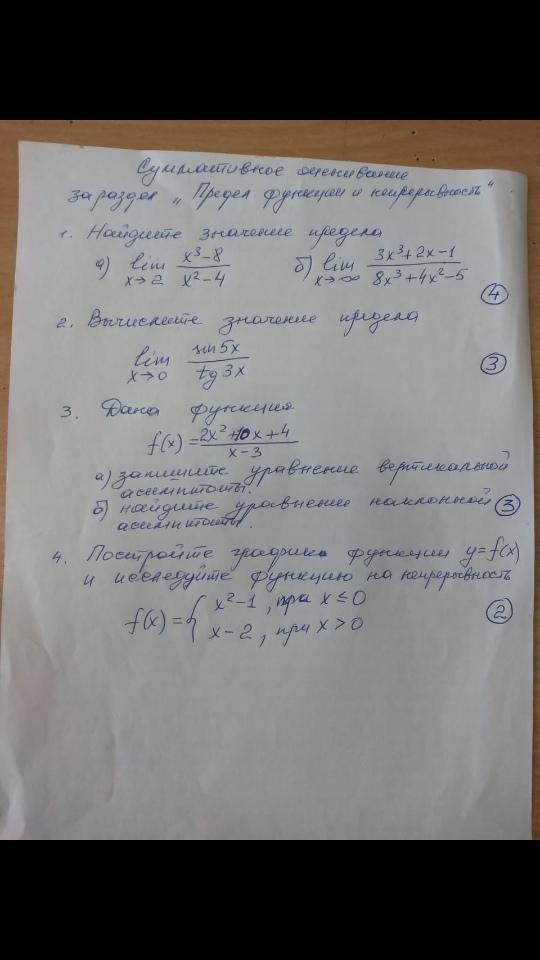 Суммативное оценивание
за раздел „Предел функции и непрерывность"
1. Найдите значение предела
а) lim x→2 (x³-8)/(x²-4) б) lim x→∞ (3x³+2x-1)/(8x³+4x²-5)
④
2. Вычислите значение предела
lim x→0 sin5x/tg3x ③
3. Дана функция
f(x)=(2x²+10x+4)/(x-3)
а) запишите уравнение вертикальной
асимптоты.
б) найдите уравнение наклонной ③
асимптоты.
4. Постройте график функции y=f(x)
и исследуйте функцию на непрерывность
f(x)={ x²-1, при x≤0 ②
x-2, при x>0